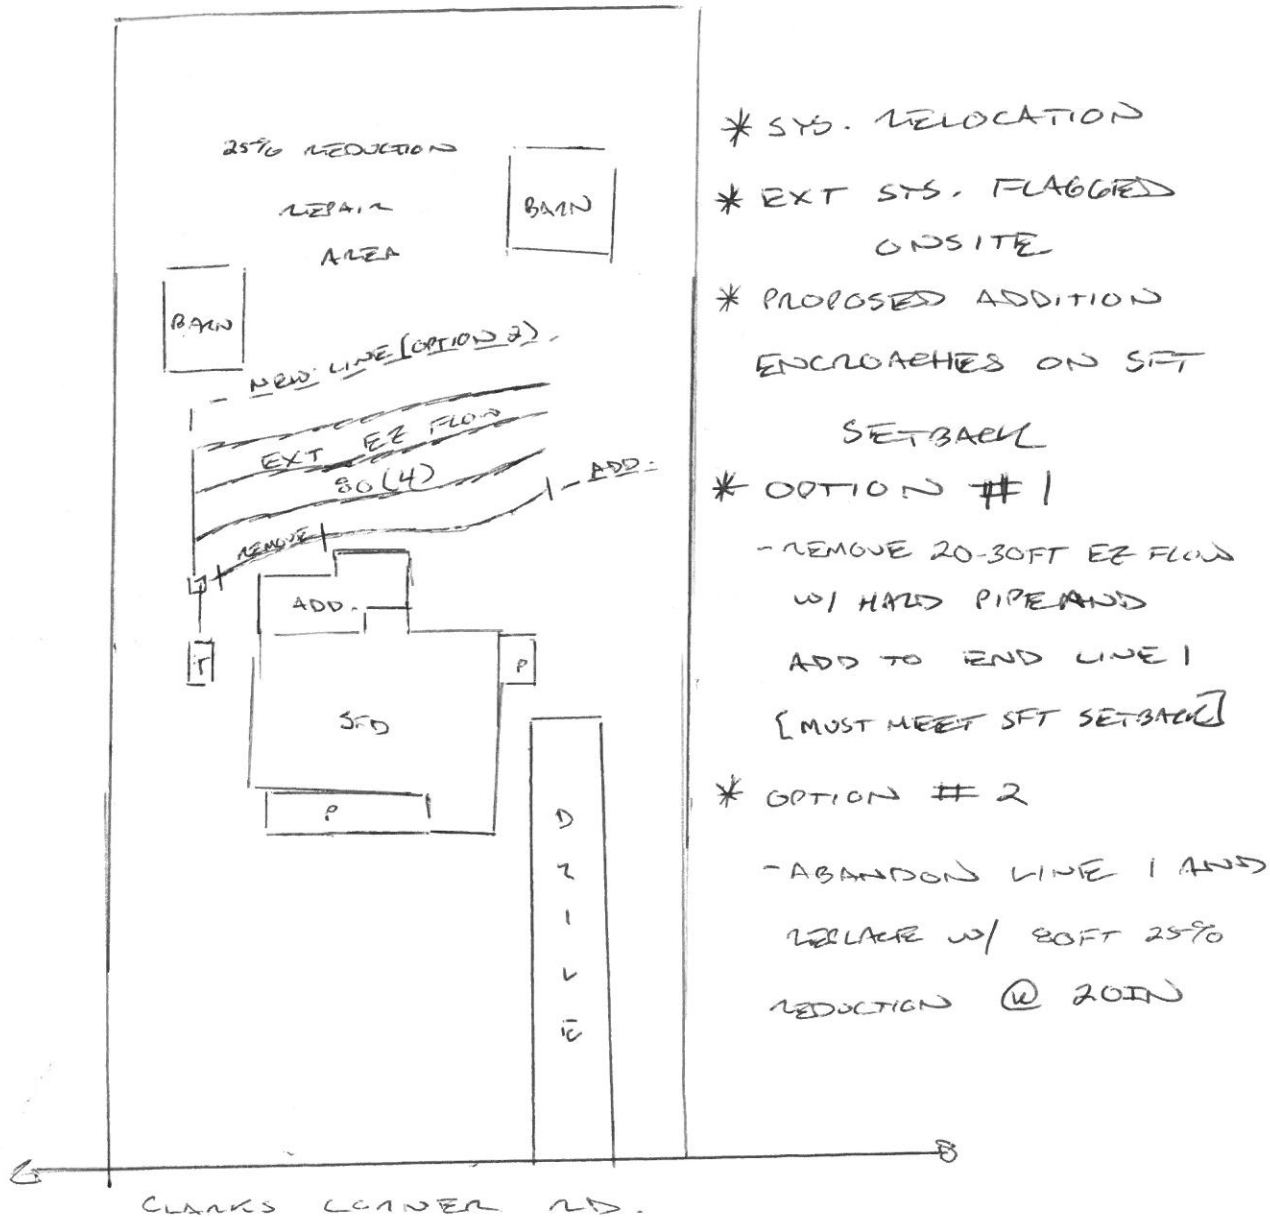 25% REDUCTION
REPAIR
AREA
BARN
BARN
NEW LINE (OPTION 2)
EXT EZ FLOW
80(4)
REMOVE
ADD.
ADD.
T
P
SFD
P
DRIVE
CLARKS CORNER RD.
* SYS. RELOCATION
* EXT SYS. FLAGGED
ONSITE
* PROPOSED ADDITION
ENCROACHES ON 5FT
SETBACK
* OPTION #1
- REMOVE 20-30FT EZ FLOW
W/ HARD PIPE AND
ADD TO END LINE 1
[MUST MEET 5FT SETBACK]
* OPTION # 2
- ABANDON LINE 1 AND
REPLACE W/ 80FT 25%
REDUCTION @ 20IN